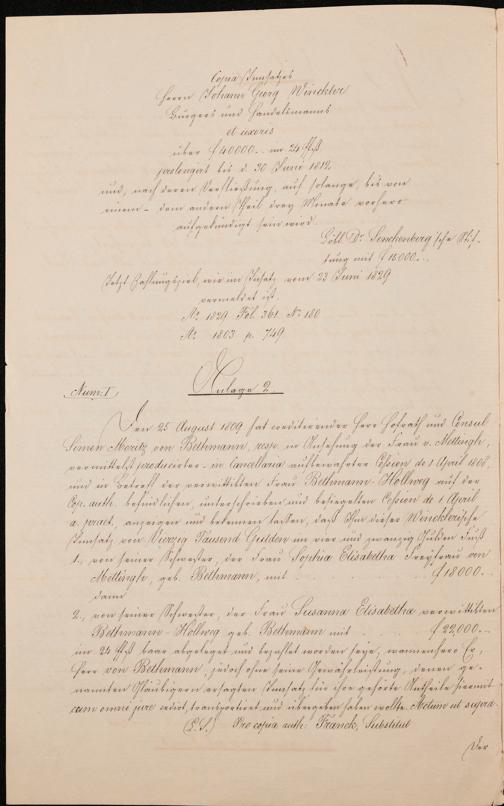 Copia Insatzes
Herrn Johann Georg Winckler
Bürgers und Handelsmanns
et uxoris
über f 40000.- im 24 fl. Fuß
prolongirt bis d. 30 Junii 1812
und, nach deren Verfließung, auf solange, bis von
einem - dem andern Theil drey Monate vorhero
aufgekündigt sein wird.
Löbl. Dr. Senckenberg'sche Stif-
tung mit f 18000.-
Jetzt Zahlungsziel, wie im Insatz vom 23 Juni 1829
vermeldet ist.
Ao. 1829 Fol. 361. No. 180
Ao. 1803 p. 749.
Num. I. Anlage 2.
Den 25 August 1809 hat creditirender Herr Hofrath und Consul
Simon Moritz von Bethmann, resp. in Ansehung der Frau v. Mettingh,
vermittelst producirter - in Cancellaria aufbewahrter Cession de 1 April 1808.
und in Betreff der verwittibten Frau Bethmann-Hollweg auf der
Cop. auth. befindlichen, unterschrieben und besiegelten Cession de 1 April
a. praet. anzeigen und bekennen lassen, daß Ihm dieser Winckler'sche
Insatz von Vierzig Tausend Gulden im vier und zwanzig Gulden Fuß
1., von seiner Schwester, der Frau Sophia Elisabetha Freyfrau von
Mettingh, geb. Bethmann, mit . . . f 18000.-
dann
2., von seiner Schwester, der Frau Susanna Elisabetha verwittibten
Bethmann-Hollweg geb. Bethmann mit . . f 22,000.-
im 24 fl. Fuß baar abgelegt und bezahlt worden seye, wannenhero Er,
Herr von Bethmann, jedoch ohne seine Gewährleistung, denen ge-
nannten Gläubigern ersagten Insatz für ihre gehörte Antheile hiermit
cum omni jure cedirt, transportirt und übergeben haben wollte. Actum ut supra.
(L.S.) Pro copia auth. Franck, Substitut
Der